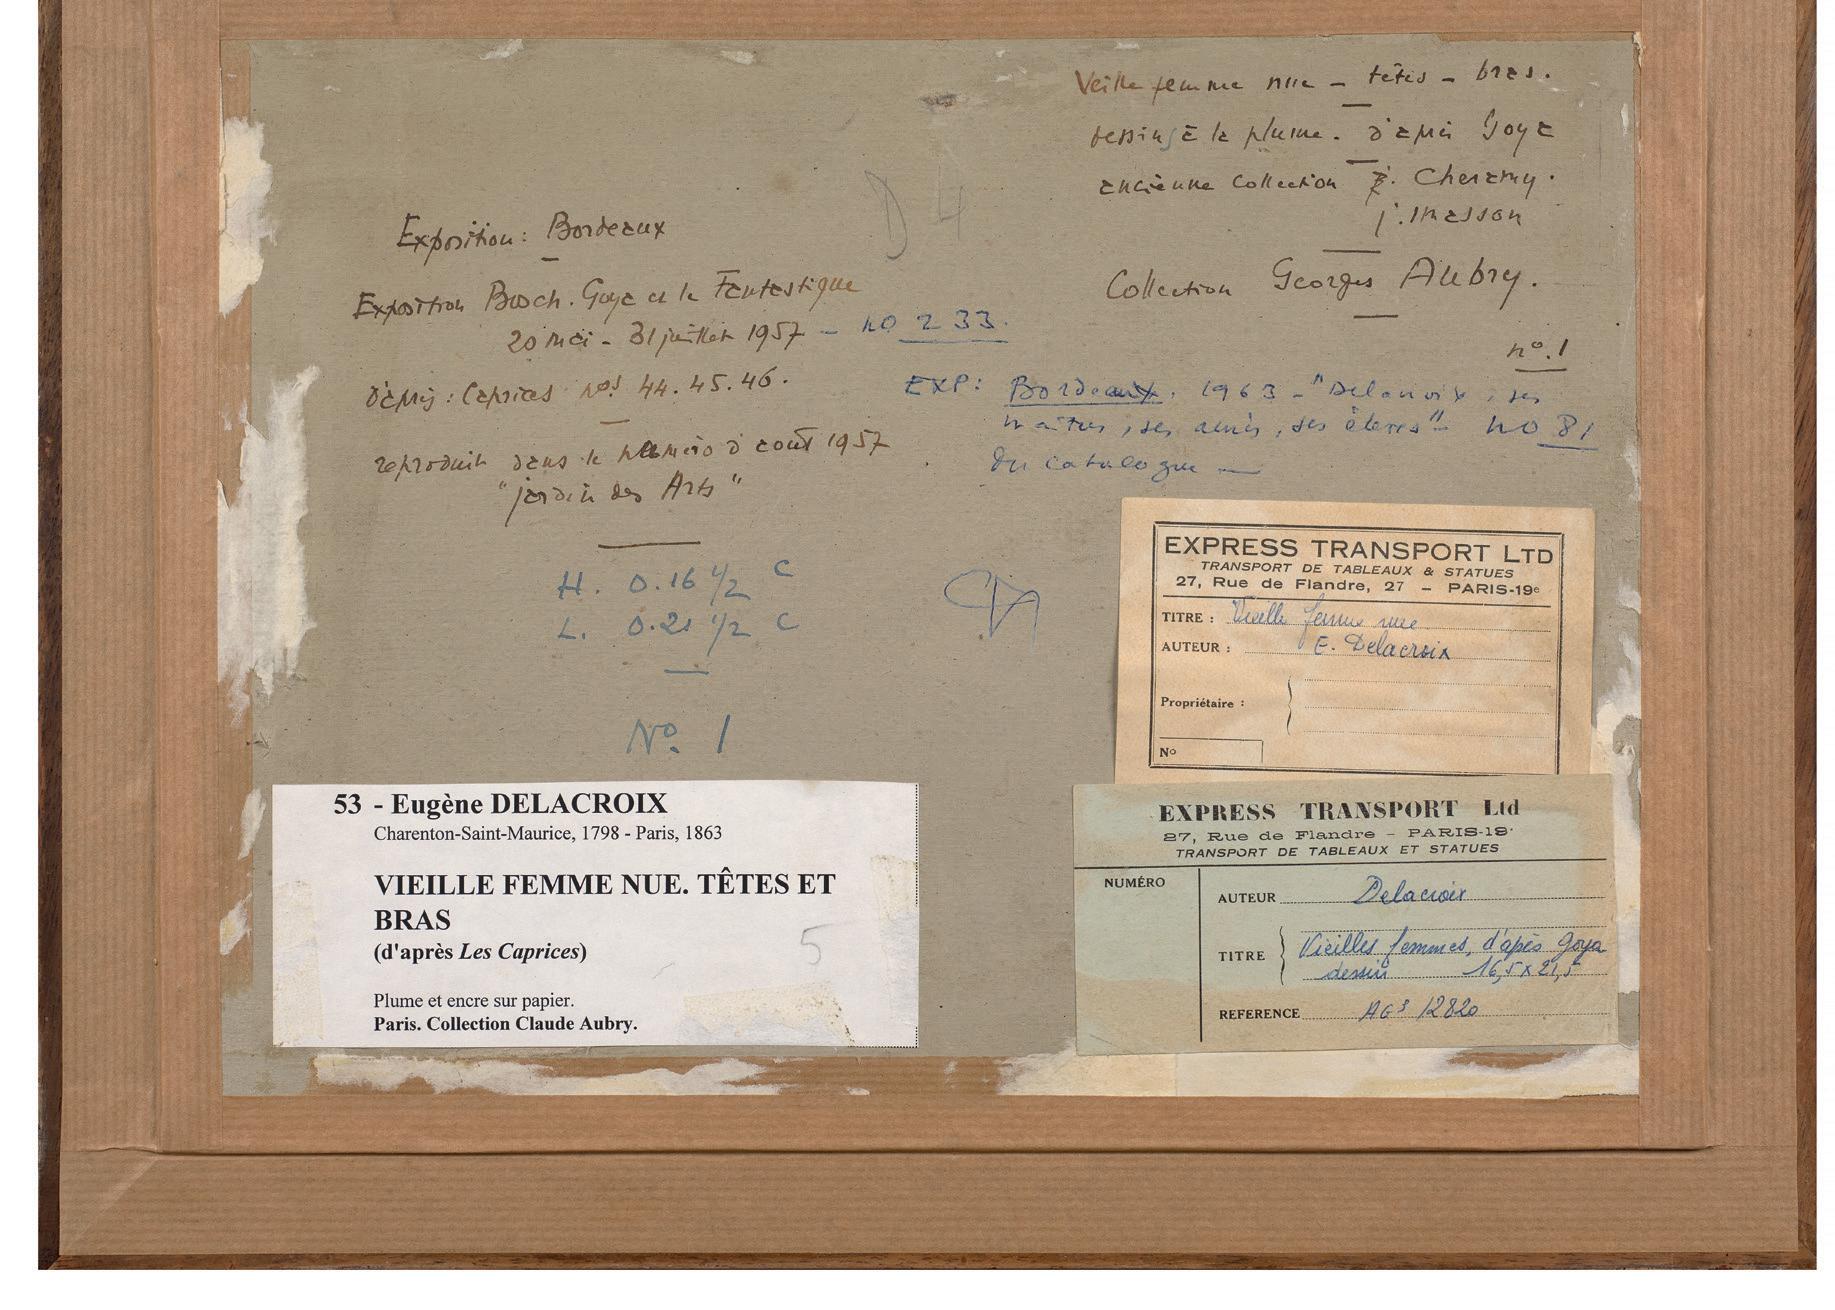 Veille femme nue – têtes – bras.
dessins à la plume. d'après Goya
ancienne Collection P. Cheramy.
J. Masson
Collection Georges Aubry.
n°.1
D 4
Exposition: Bordeaux
Exposition Bosch. Goya et le Fantastique
20 mai - 31 juillet 1957 – no 233.
d'après: Caprices nos 44. 45. 46.
reproduit dans le numéro d'aout 1957
"jardin des Arts"
EXP: Bordeaux. 1963 – "Delacroix, ses
maîtres, ses amis, ses élèves" – no 81
du catalogue —
H. 0.16 1/2 C
L. 0.21 1/2 C
N°. 1
EXPRESS TRANSPORT LTD
TRANSPORT DE TABLEAUX & STATUES
27, Rue de Flandre, 27 – PARIS-19e
TITRE : Vieille femme nue
AUTEUR : E. Delacroix
Propriétaire :
No
53 - Eugène DELACROIX
Charenton-Saint-Maurice, 1798 - Paris, 1863
VIEILLE FEMME NUE. TÊTES ET
BRAS
(d'après Les Caprices)
5
Plume et encre sur papier.
Paris. Collection Claude Aubry.
EXPRESS TRANSPORT Ltd
27, Rue de Flandre – PARIS-19e
TRANSPORT DE TABLEAUX ET STATUES
NUMÉRO
AUTEUR Delacroix
TITRE Vieilles femmes, d'après Goya
dessin 16,5 x 21,5
REFERENCE 12820